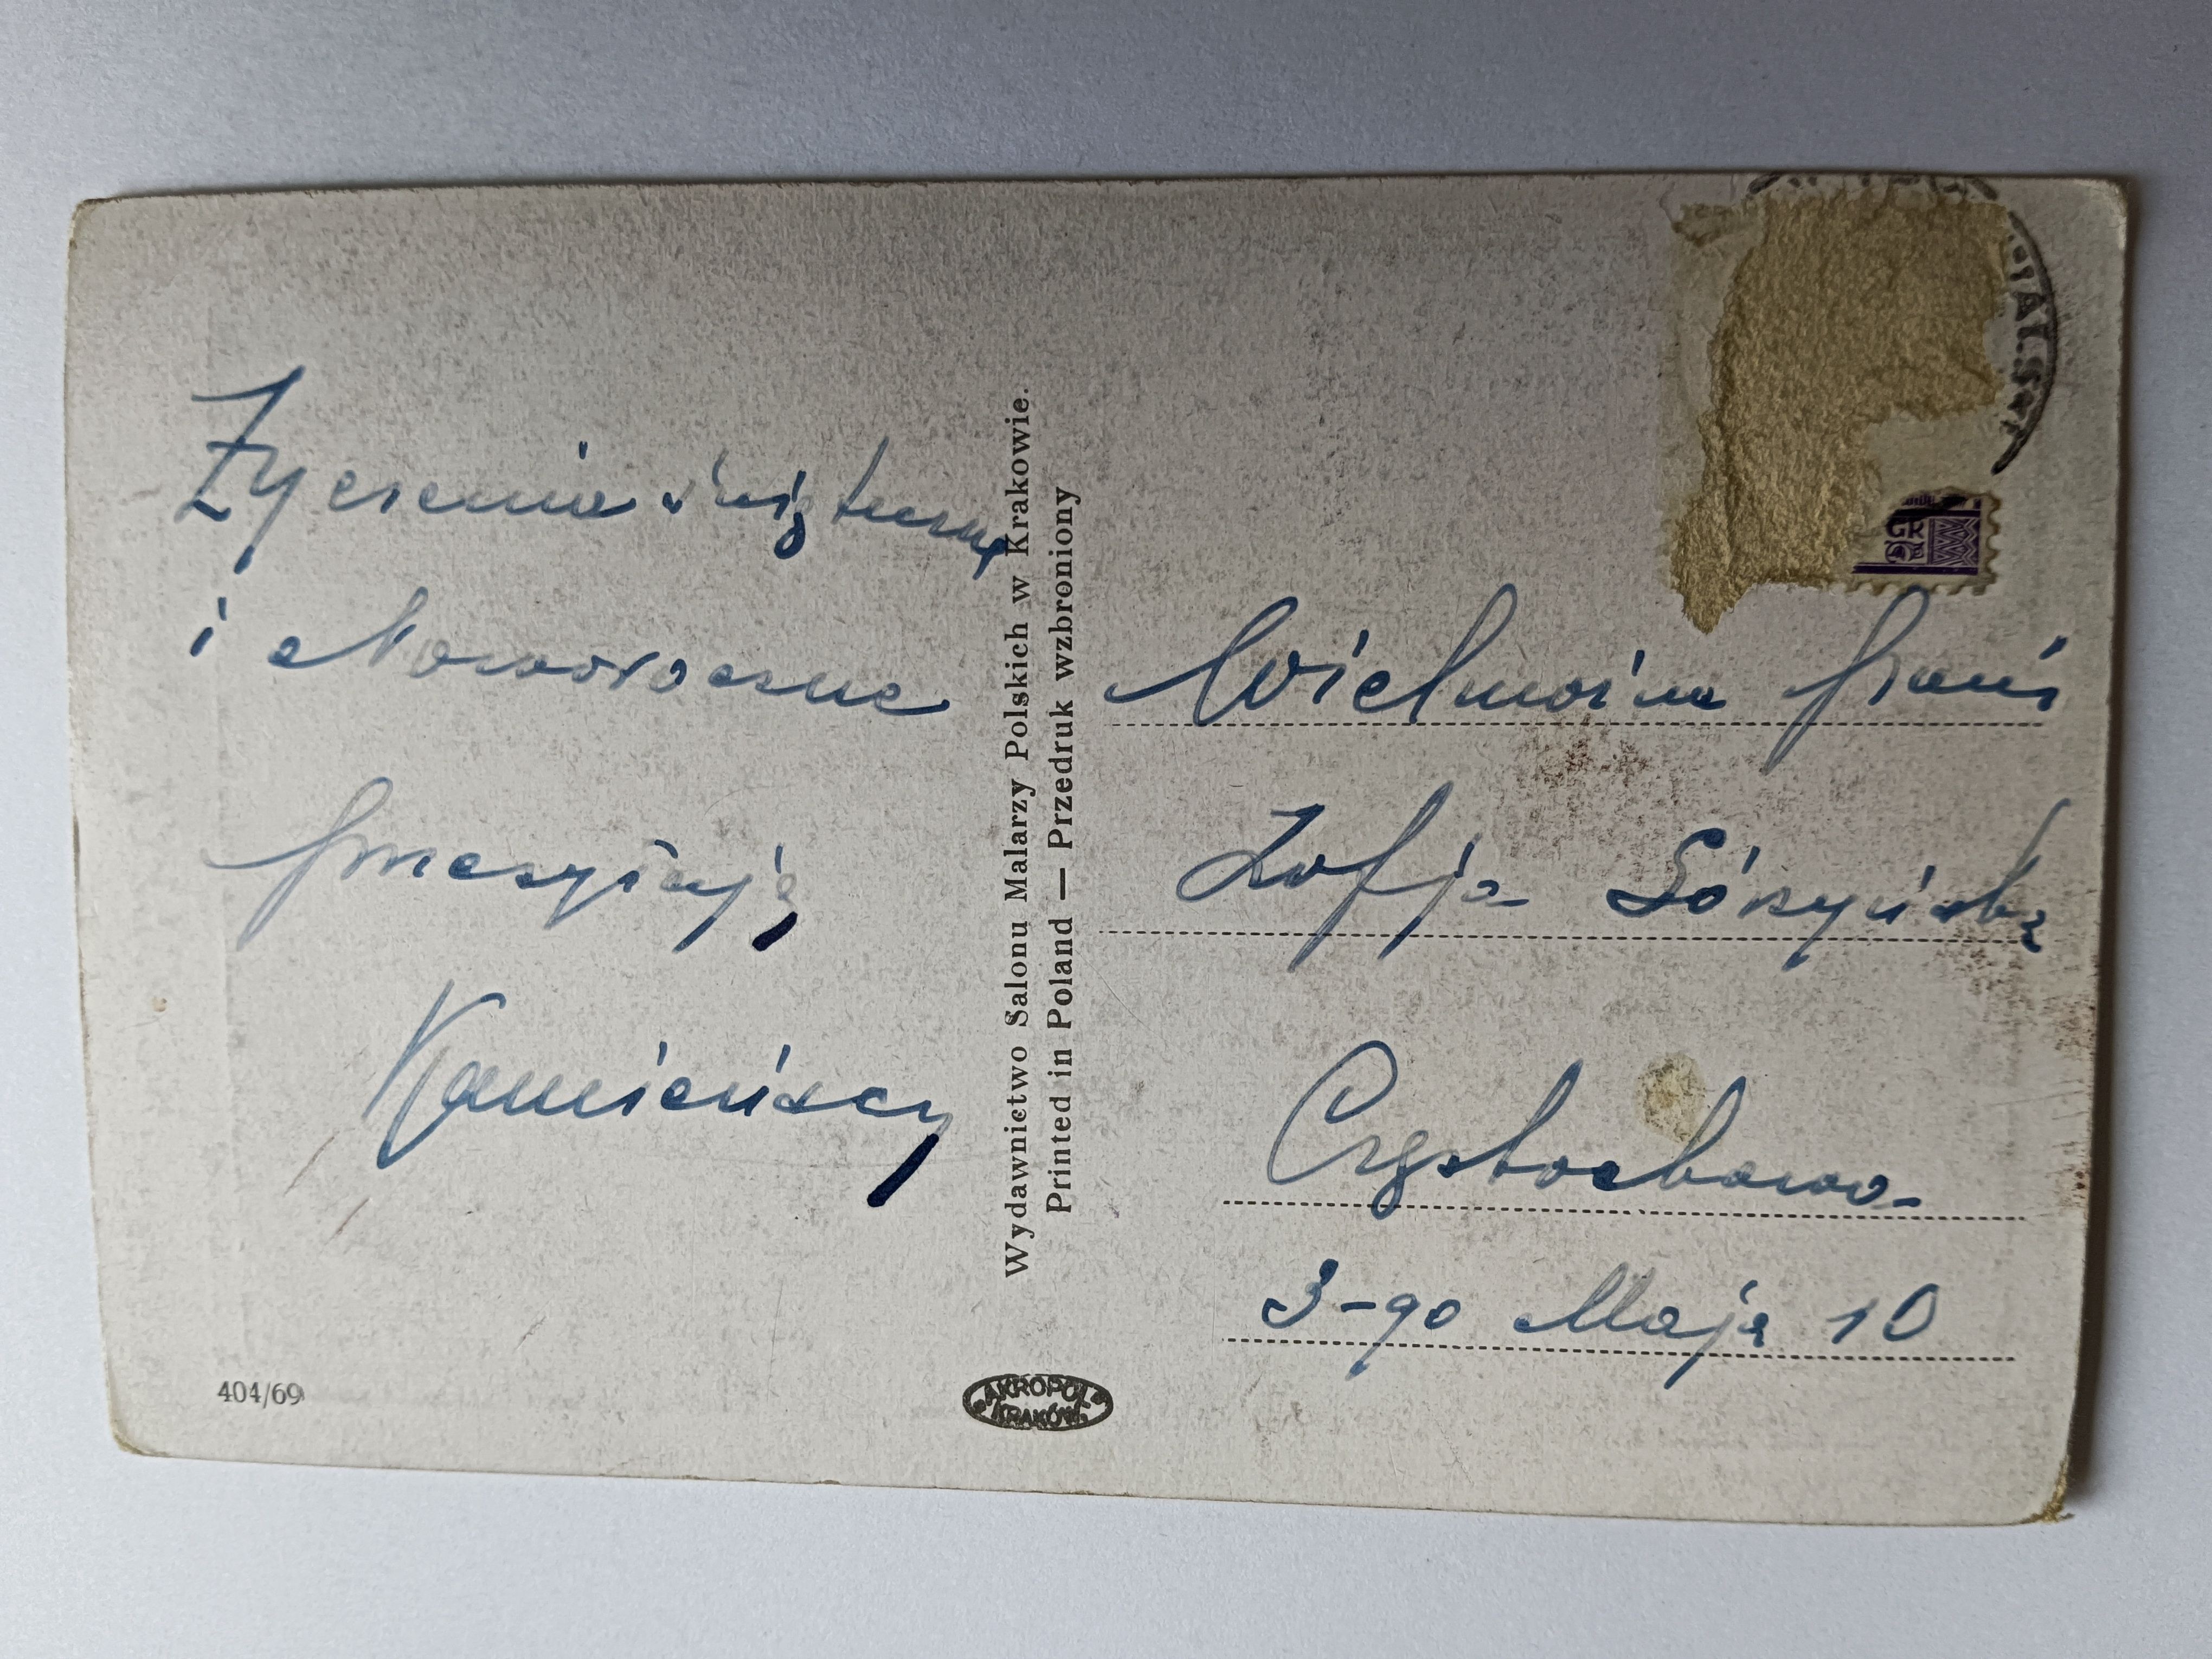 Życzenia świąteczne
i Noworoczne
przesyłają
Kamieńscy
404/69
Wydawnictwo Salonu Malarzy Polskich w Krakowie.
Printed in Poland — Przedruk wzbroniony
AKROPOL
KRAKÓW
GR
Wielmożna Pani
Zofja
Częstochowa
3-go Maja 10